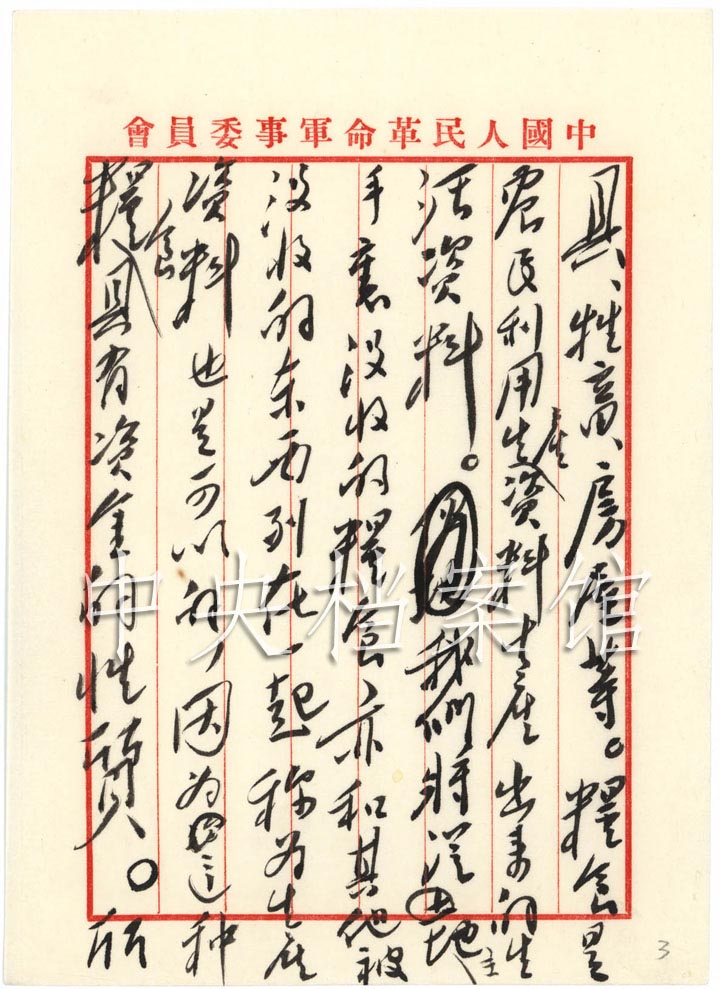 中國人民革命軍事委員會
具、牲畜、房屋等。糧食是
農民利用生產資料生產出來的生
活資料。我們將從地主
手裏没收的糧食、亦和其他被
没收的东西列在一起称为生產
資料也是可以的,因为這种
糧食具有資金的性質。所
3
中央档案馆